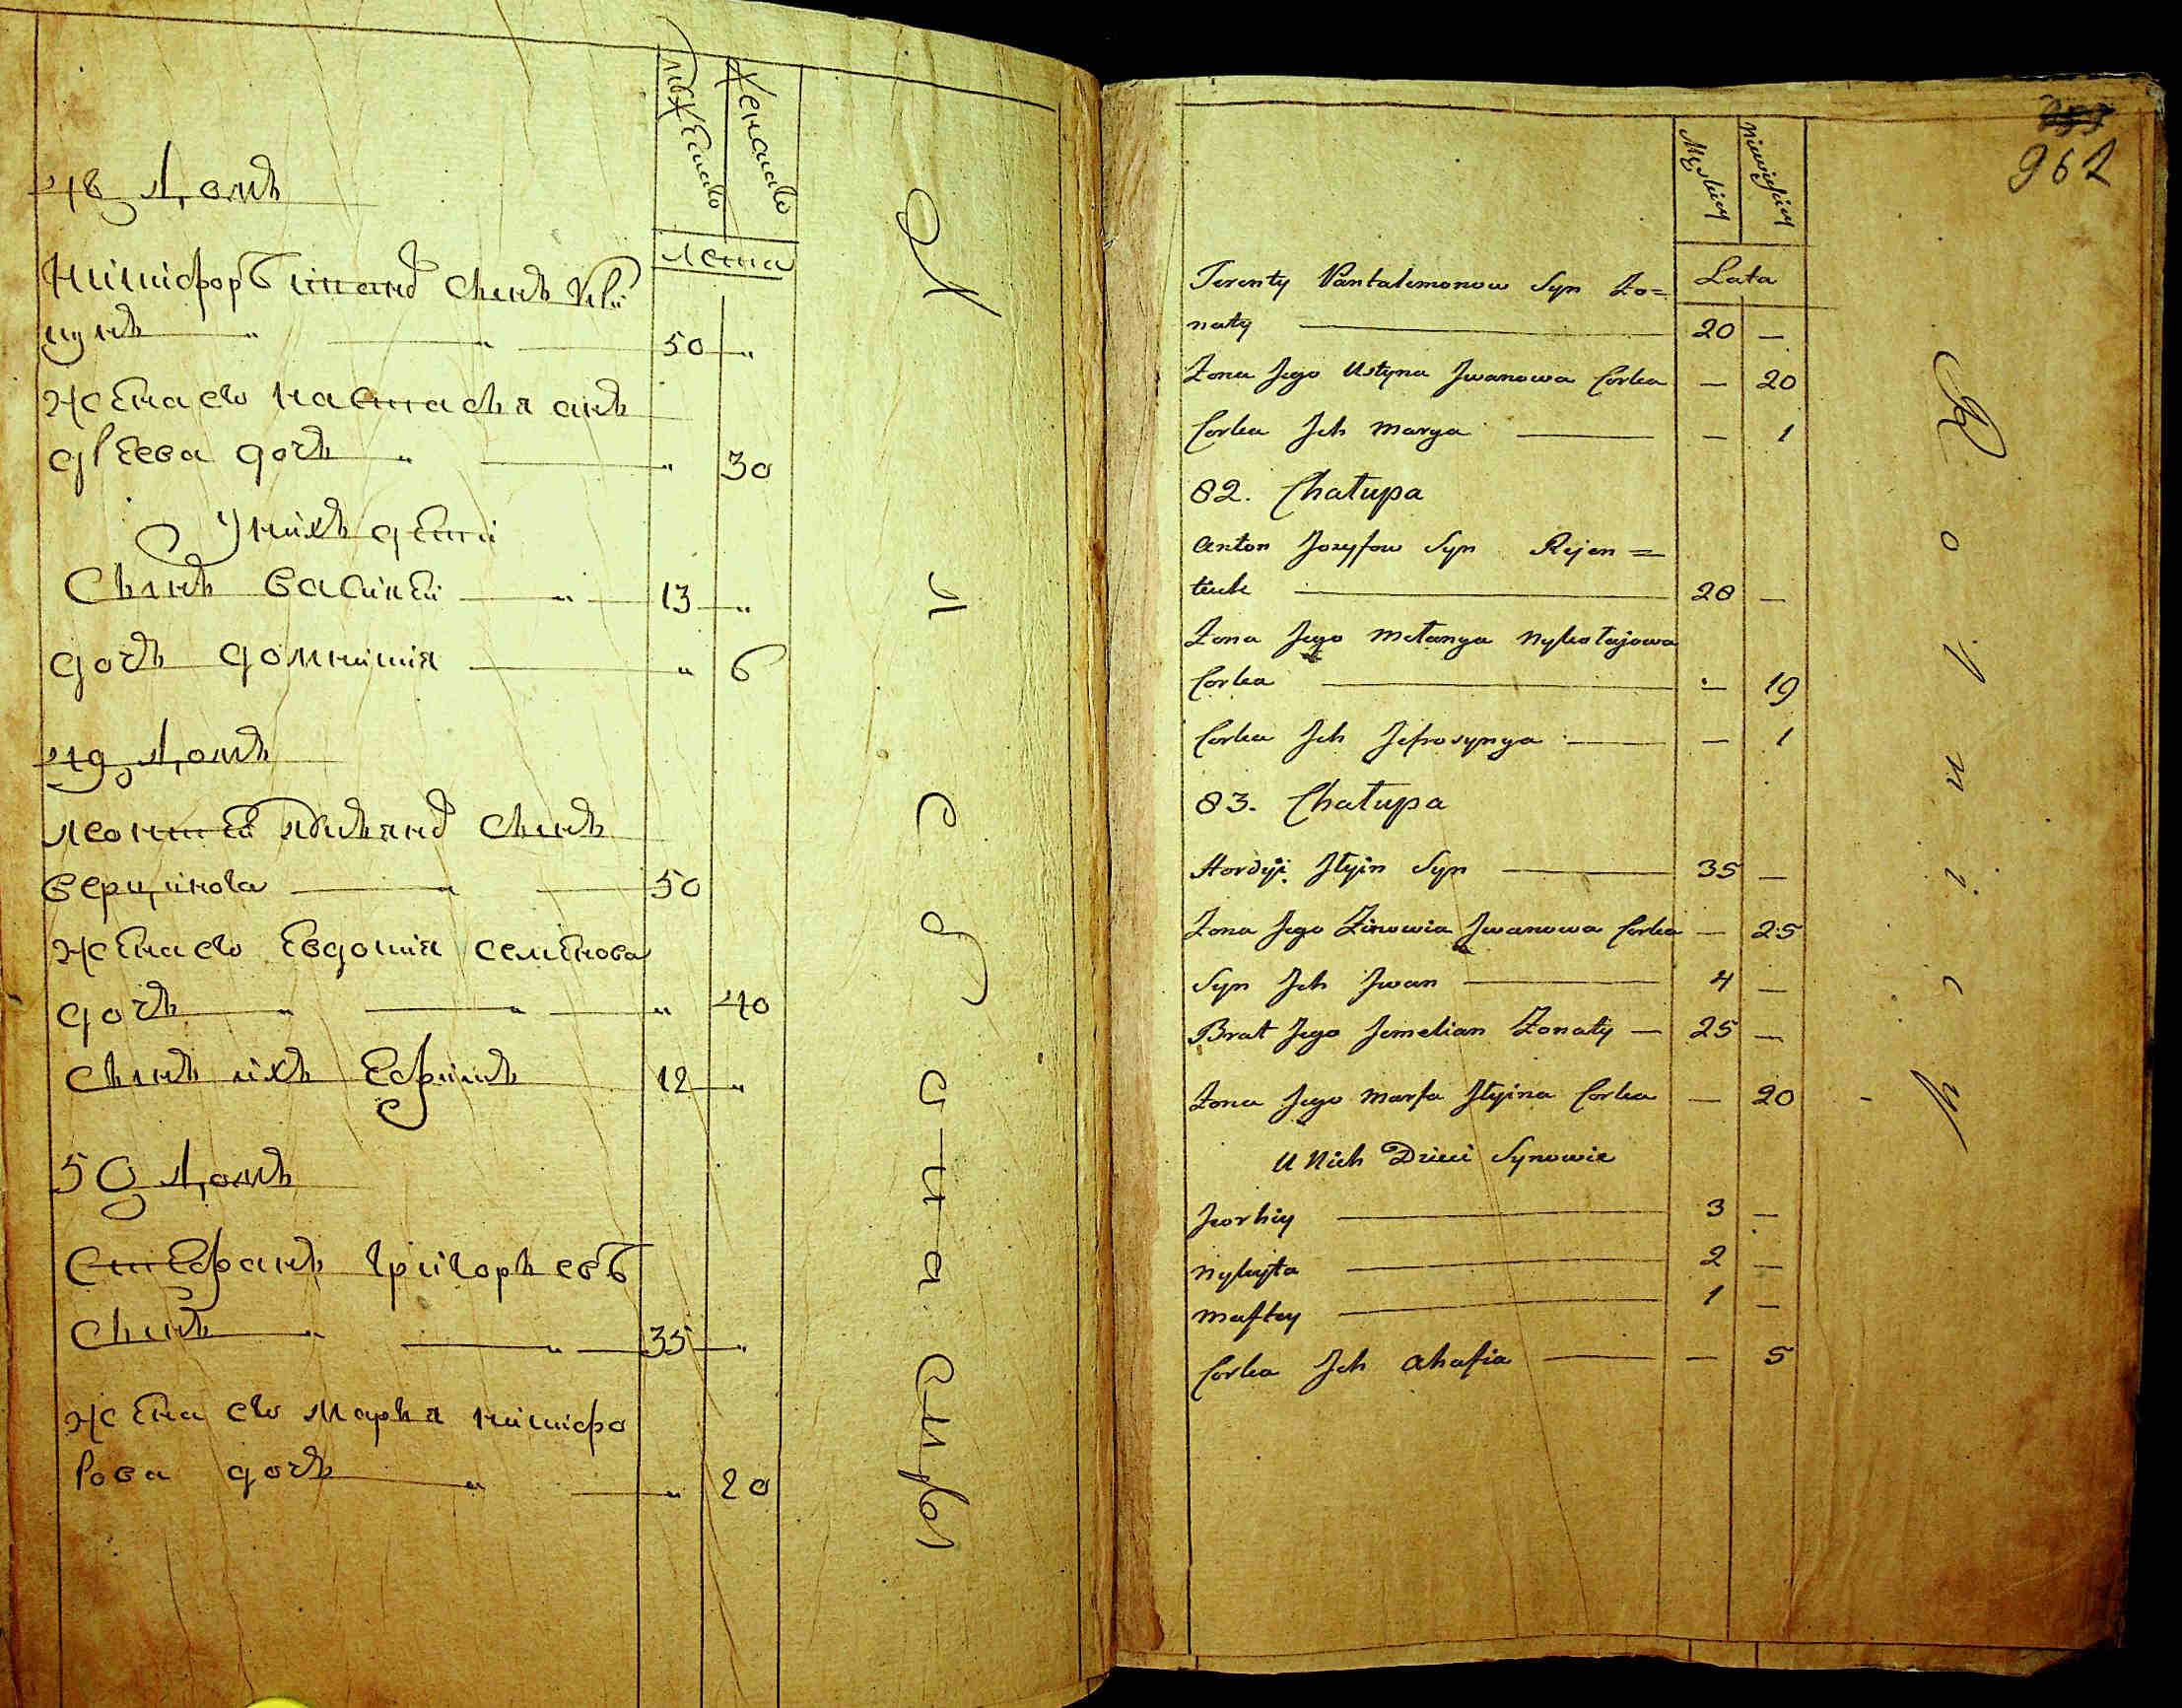 Мужеска
Женска
лета
48 Домъ
Никифоръ сынъ
50 "
жена его настасья ан
дреева дочь " " 30
У нихъ дети
Сынъ василей " 13 "
дочь домникия " 6
49 Домъ
леонтей сынъ
50
жена его Евдокия семенова
дочь " " " 40
Сынъ ихъ Ефимъ 12 "
50 Домъ
Стефанъ григорьевъ
Сынъ " " 35 "
жена его марья никифо
рова дочь " " 20
962
Męskiey
Niewieściey
Lata
Terenty Pantalemonow Syn Żo=
naty 20 —
Żona Jego Ustyna Jwanowa Corka — 20
Corka Jch Marya — 1
82. Chałupa
Anton Jozyfow Syn Rejen=
tiuk 28 —
Żona Jego Mełanya Nykołajowa
Corka — 19
Corka Jch Jefrosynya — 1
83. Chałupa
Hordyi Jłyin Syn 35 —
Żona Jego Zinowia Jwanowa Corka — 25
Syn Jch Jwan 4 —
Brat Jego Jemelian Żonaty — 25 —
Żona Jego Marfa Jłyina Corka — 20
U Nich Dzieci Synowie
Jeorhiy 3 —
Nykyta 2 —
Maftey 1 —
Corka Jch Ahafia — 5
R o l n i c y